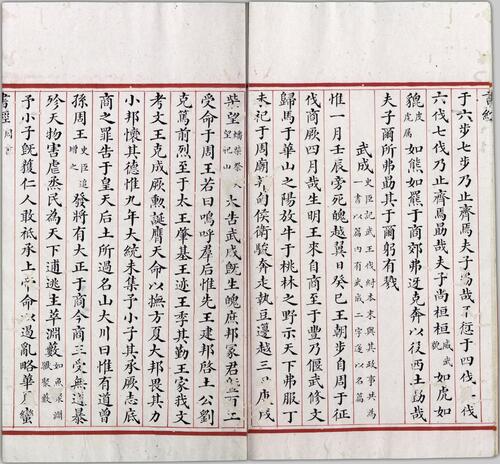 書經
于六步七步乃止齊焉夫子勗哉不愆于四伐五伐
六伐七伐乃止齊焉勗哉夫子尚桓桓威武貌如虎如
貔虎属如熊如羆于商郊弗迓克奔以役西土勗哉
夫子爾所弗勗其于爾躬有戮
武成史臣記武王伐紂本末與其政事共為
一書以篇內有武成二字遂以名篇
惟一月壬辰旁死魄越翼日癸巳王朝步自周于征
伐商厥四月哉生明王來自商至于豐乃偃武修文
歸馬于華山之陽放牛于桃林之野示天下弗服丁
未祀于周廟邦甸侯衛駿奔走執豆籩越三日庚戌
柴望燔柴祭天望祀山川大告武成既生魄庶邦冢君暨百工
受命于周王若曰嗚呼群后惟先王建邦啟土公劉
克篤前烈至于太王肇基王迹王季其勤王家我文
考文王克成厥勳誕膺天命以撫方夏大邦畏其力
小邦懷其德惟九年大統未集予小子其承厥志底
商之罪告于皇天后土所過名山大川曰惟有道曾
孫周王史臣追增之發將有大正于商今商王受無道暴
殄天物害虐烝民為天下逋逃主萃淵藪如魚聚淵獸聚藪
予小子既獲仁人敢祗承上帝以遏亂略華夏蠻
書經周書